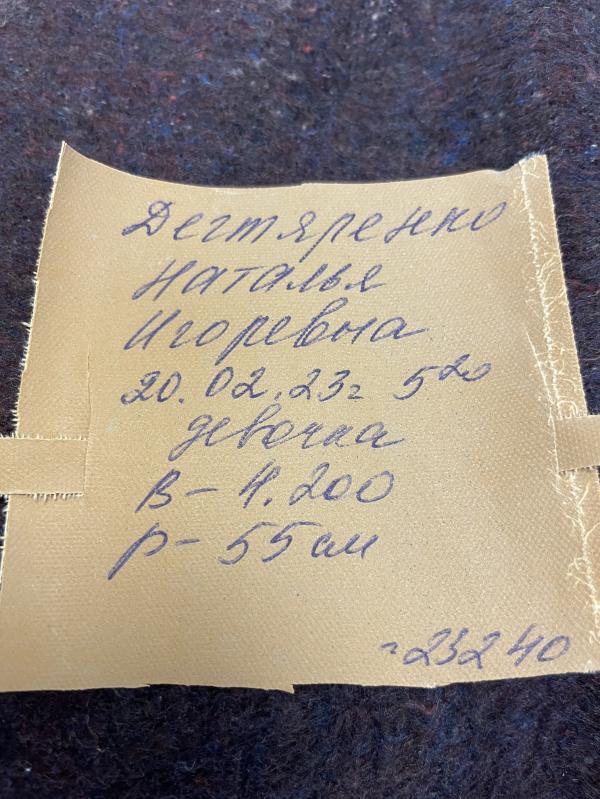 Дегтяренко
Наталья
Игоревна
20.02.23г 5²⁰
девочка
в – 4.200
р – 55 см
23240